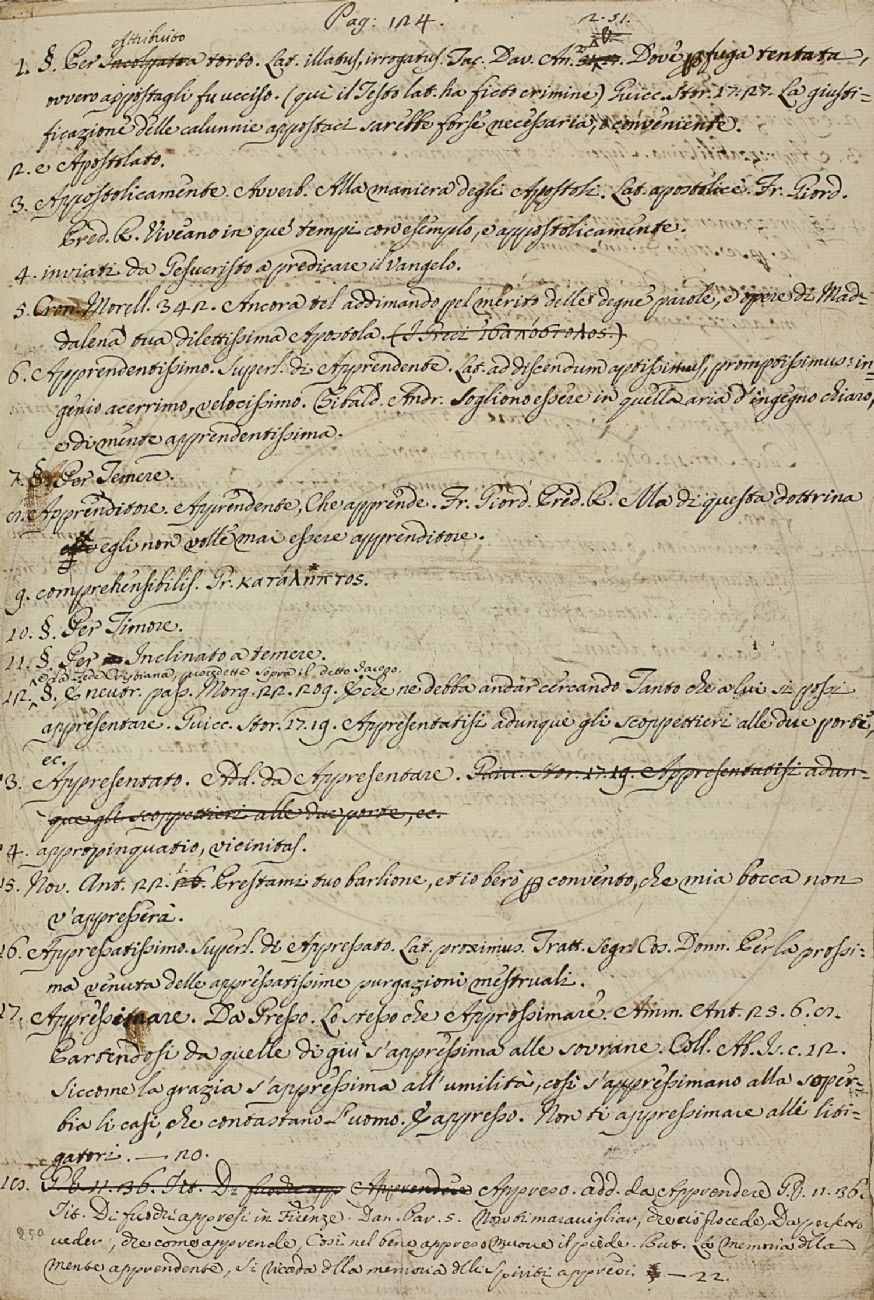 Pag: 124.
attribuito 2. 51.
1. §. Per incolpato a torto. Lat. illatus, irrogatus. Tac. Dav. An. Dove p fuga tentata,
ovvero appostagli fu ucciso. (quì il Testo lat. ha ficto crimine) Guicc. Stor. 17. 27. La giusti-
ficazione delle calunnie appostaci sarebbe forse necessaria, e conveniente.
2. e Apostolato.
3. Appostolicamente. Avverb. Alla maniera degli Apostoli. Lat. apostolicè. Fr. Giord.
Pred. R. Viveano in que' tempi con esemplo, e appostolicamente.
4. inviati da Gesucristo a predicare il Vangelo.
5. Cron. Morell. 342. Ancora tel addimando pel merito delle degne parole, e opere di Mad-
dalena tua dilettissima Apostola. (I Greci ἀπόστολος.)
6. Apprendentissimo. Superl. di Apprendente. Lat. ad discendum aptissimus, promptissimus: in-
genio acerrimo, velocissimo. Zibald. Andr. Sogliono essere in quella aria d'ingegno chiaro,
e di mente apprendentissima.
7. §. Per Temere.
8. Apprenditore. Apprendente, Che apprende. Fr. Giord. Pred. R. Ma di questa dottrina
egli non volle mai essere apprenditore.
9. comprehensibilis. Gr. καταληπτος.
10. §. Per Timore.
11. §. Per Inclinato a temere.
e la Fede Cristiana, procedette sopra il detto Jacopo.
12. §. E neutr. pass. Morg. 22. 209. E che ne debba andar cercando Tanto che a lui si possi
appresentare. Guicc. Stor. 17. 19. Appresentatisi adunque gli scoppettieri alle due porte,
ec.
13. Appresentato. Add. da Appresentare. Guicc. Stor. 17. 19. Appresentatisi adun-
que gli scoppettieri alle due porte, ec.
14. appropinquatio, vicinitas.
15. Nov. Ant. 22. Prestami tuo barlione, et io berò p convento, che mia bocca non
v'appresserà.
16. Appressatissimo. Superl. di Appressato. Lat. proximus. Tratt. Segr. Cos. Donn. Per la prossi-
ma venuta delle appressatissime purgazioni mestruali.
17. Appressimare. Da Presso. Lo stesso che Approssimare. Amm. Ant. 25. 6. 8.
Partendosi da quelle di giù s'appressima alle sovrane. Coll. Ab. Is. c. 12.
Siccome la grazia s'appressima all'umiltà, così s'appressimano alla super-
bia li casi, che contastano l'uomo. E appresso. Non ti appressimare alli liti-
gatori. — 20.
18. G. V. 11. 136. Tit. Di Apprendere Appreso. add. da Apprendere G. V. 11. 136.
Tit. Di fuochi appresi in Firenze. Dan. Par. 5. Non ti maravigliar, che ciò procede, Da perfetto
veder, che come apprende, Così nel bene appreso muove il piede. But. La memoria della
mente apprendente, si ricorda della memoria delli Spiriti appresi. — 22.